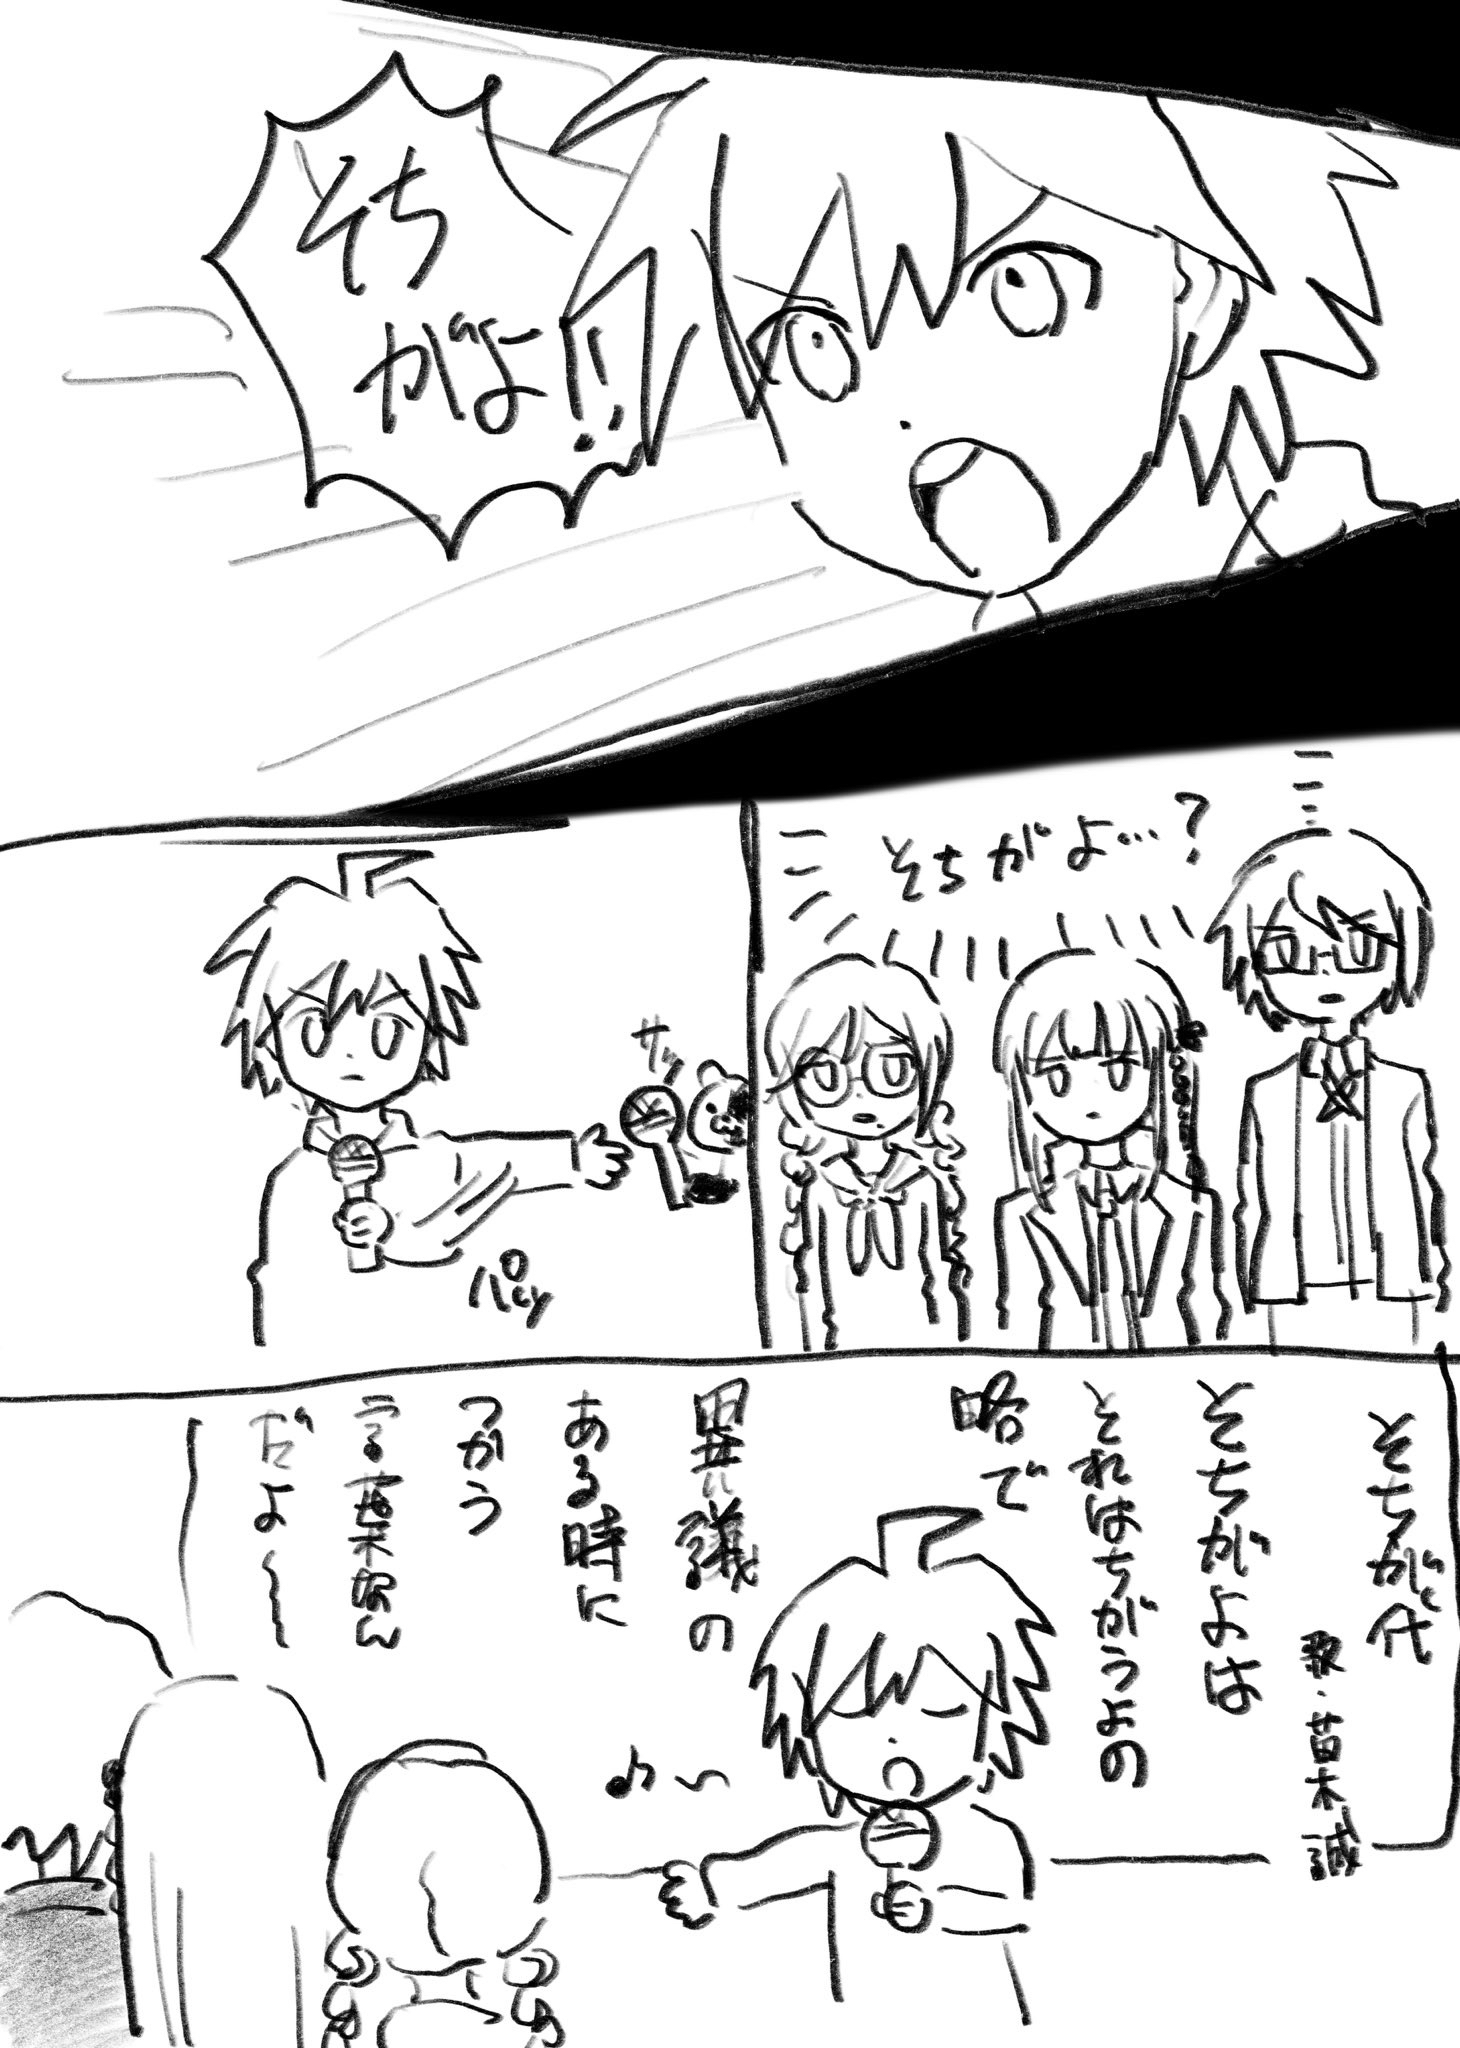 そち
がよ!!
そちがよ…?
サッ
パッ
そちが代
歌・苗木誠
そちがよは
それはちがうよの
略で
異議の
ある時に
つかう
言葉なん
だよ〜〜
♪〜